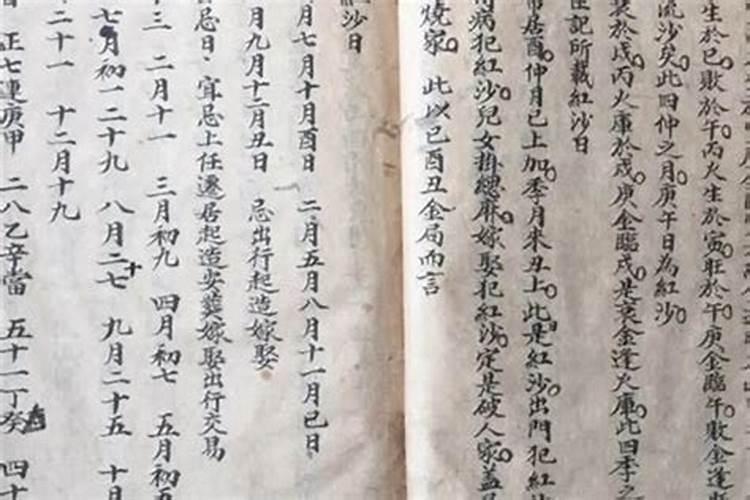 生於巳敗於午丙火生於寅旺於午庚金臨午敗金逢
流沙矣此四仲之月庚午日為紅沙
於戌丙火庫於戌庚金臨戌是衰金逢火庫此四季之
記所載紅沙日
居酉仲月巳上加季月來丑上此是紅沙出門犯紅
病犯紅沙兒女掛緦麻嫁娶犯紅沙定是破人家蓋
燒家 此以巳酉丑金局而言
紅沙日
月七月十月酉日 二月五月八月十一月巳日
月九月十二月丑日 忌出行起造嫁娶
忌日 宜忌上任遷居起造安葬嫁娶出行交易
三 二月十一 三月初九 四月初七 五月初五
七月初一二十九 八月二十七 九月二十五 十月
二十一 十二月十九
正七連庚甲 二八乙辛當 五十一丁癸 四十